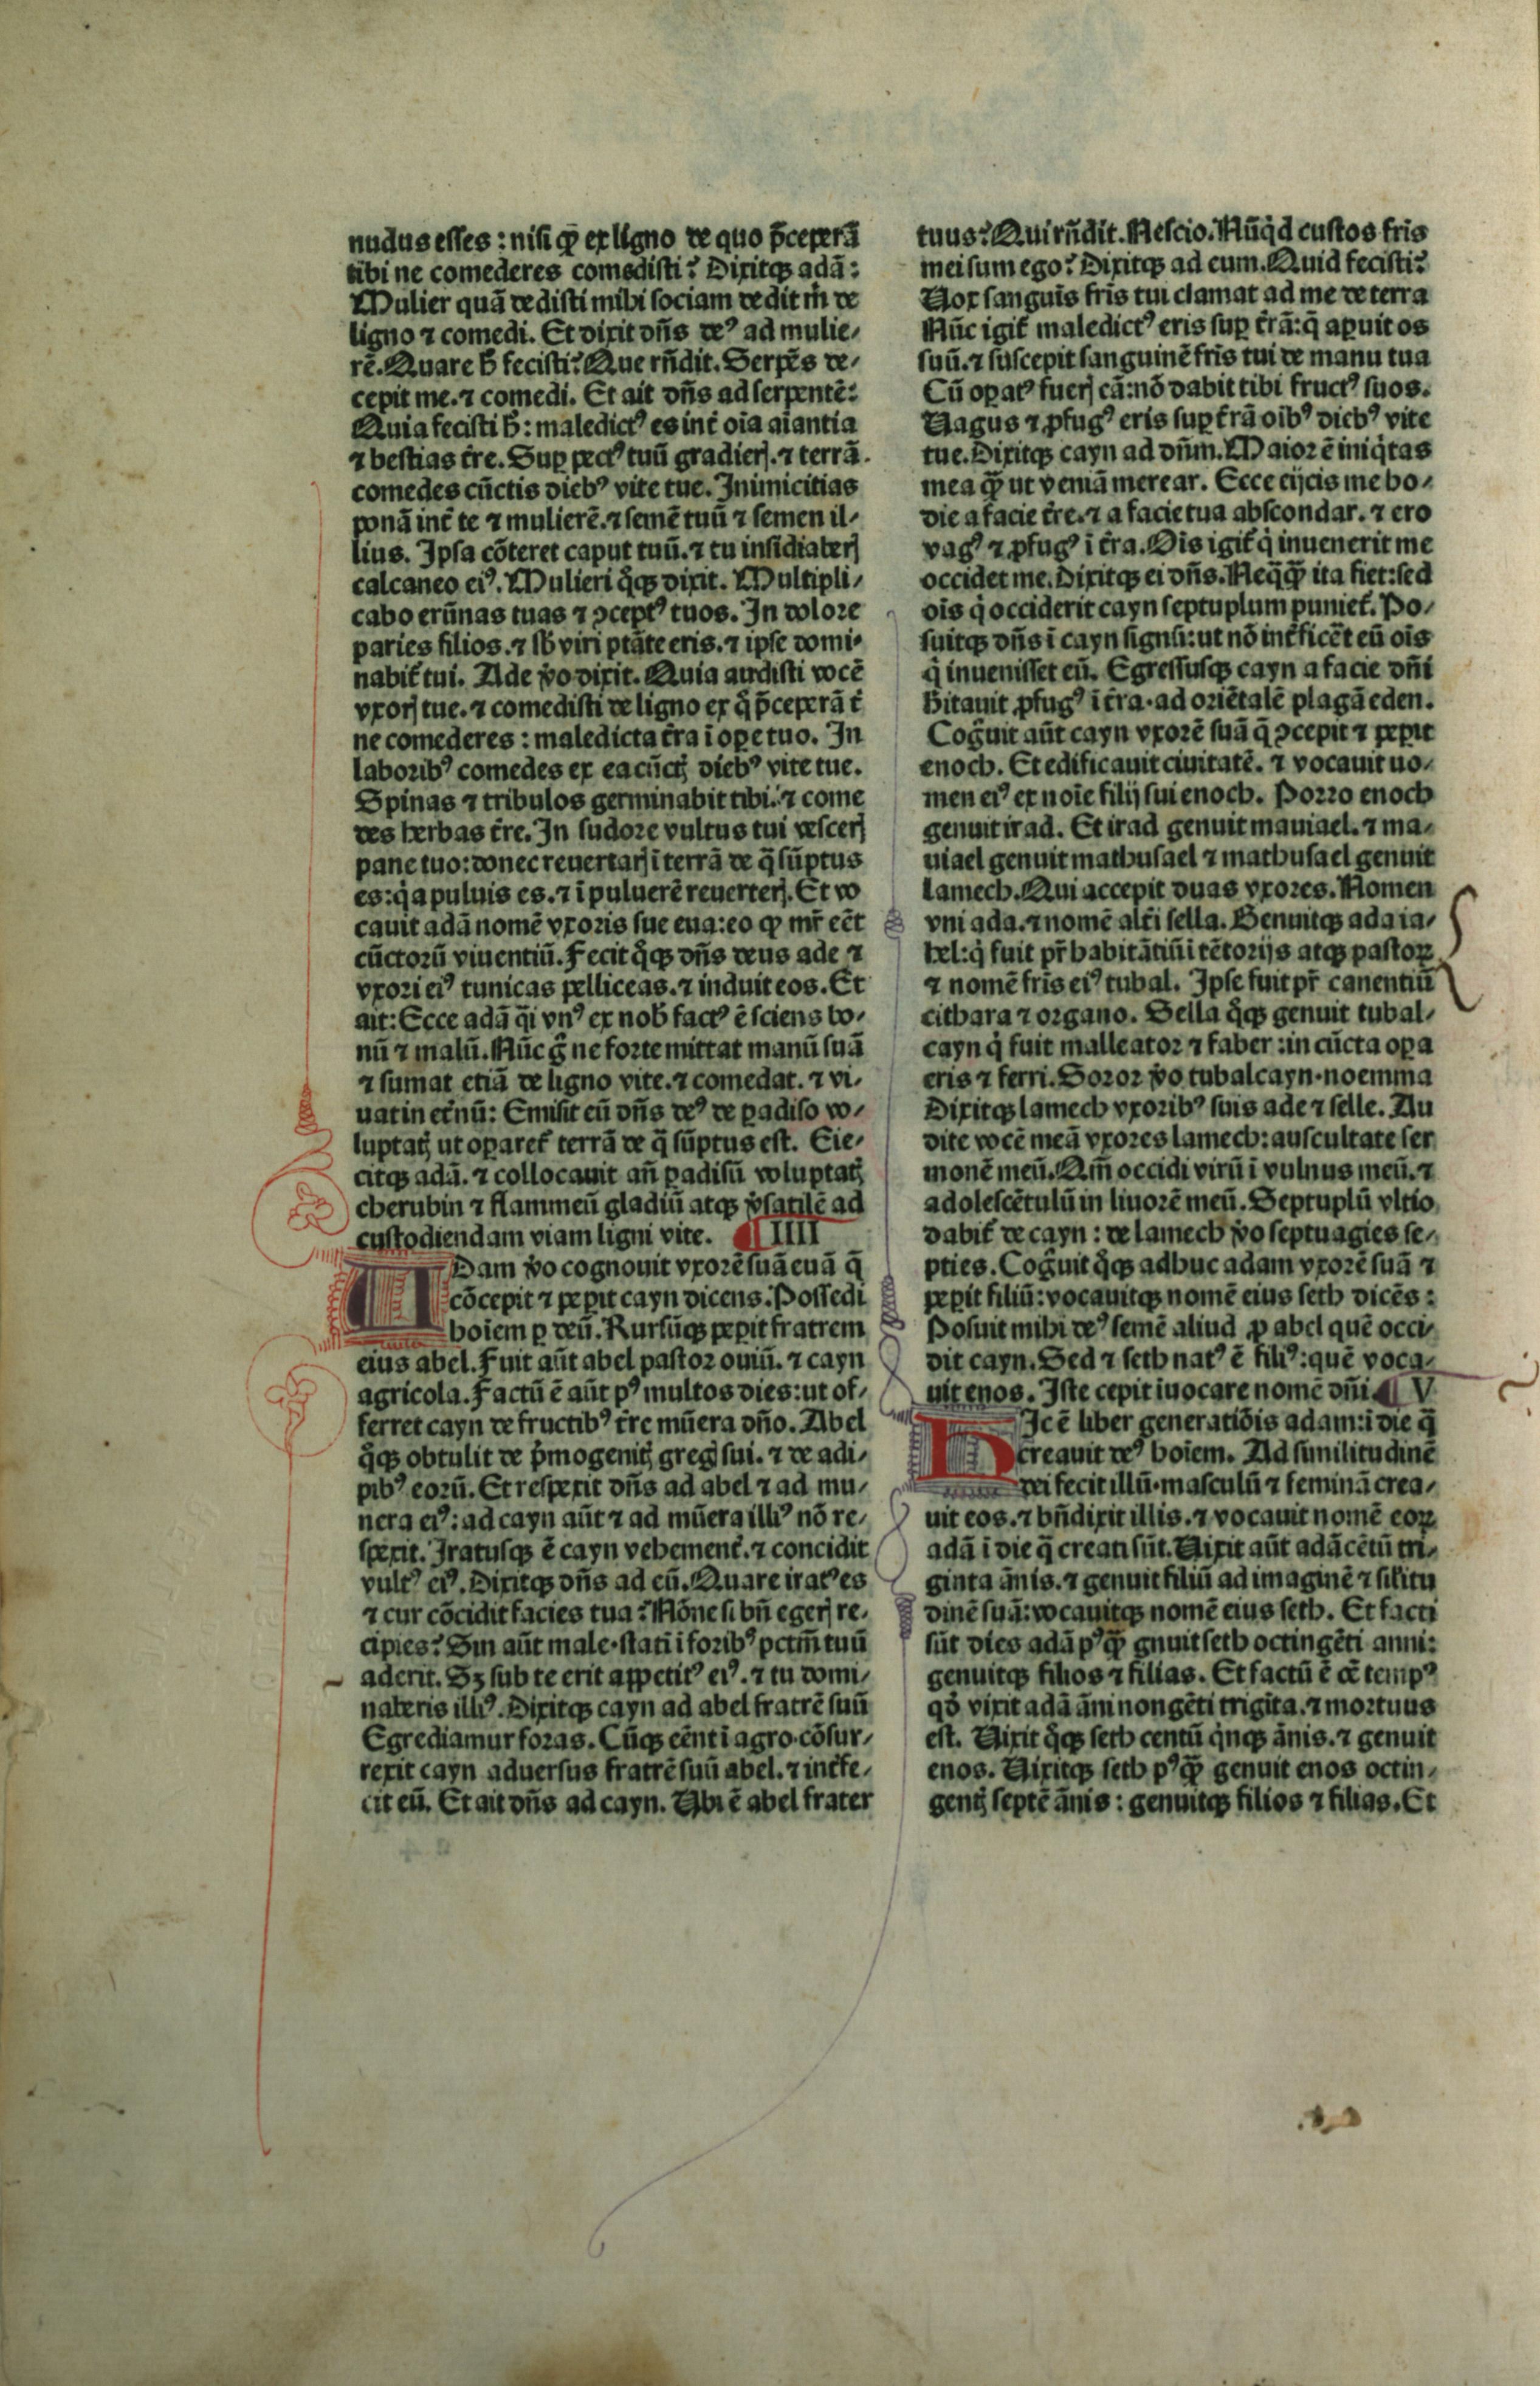 nudus esses : nisi ꝙ ex ligno de quo p̄ceperā
tibi ne comederes comedisti? Dixitqꝫ adā:
Mulier quā dedisti mihi sociam dedit m̄ de
ligno ⁊ comedi. Et dixit dn̄s deꝰ ad mulie-
rē. Quare h̄ fecisti? Que rn̄dit. Serpēs de-
cepit me. ⁊ comedi. Et ait dn̄s ad serpentē:
Quia fecisti h̄: maledictꝰ es int̄ oīa aīantia
⁊ bestias t̄re. Suꝑ pectꝰ tuū gradierꝭ. ⁊ terrā
comedes cūctis diebꝰ vite tue. Inimicitias
ponā int̄ te ⁊ mulierē. ⁊ semē tuū ⁊ semen il-
lius. Ipsa cōteret caput tuū. ⁊ tu insidiaberꝭ
calcaneo eiꝰ. Mulieri q̊qꝫ dixit. Multipli-
cabo erūnas tuas ⁊ ꝯceptꝰ tuos. In dolore
paries filios. ⁊ sb̄ viri ptāte eris. ⁊ ipse domi-
nabit̄ tui. Ade v̊o dixit. Quia audisti vocē
vxorꝭ tue. ⁊ comedisti de ligno ex q̊ p̄ceperā t̄
ne comederes : maledicta t̄ra ī oꝑe tuo. In
laboribꝰ comedes ex ea cūctꝭ diebꝰ vite tue.
Spinas ⁊ tribulos germinabit tibi. ⁊ come
des herbas t̄re. In sudore vultus tui vescerꝭ
pane tuo: donec reuertarꝭ ī terrā de q̄ sūptus
es: qꝛ puluis es. ⁊ ī puluerē reuerterꝭ. Et vo
cauit adā nomē vxoris sue eua: eo ꝙ mr̄ eēt
cūctorū viuentiū. Fecit q̊qꝫ dn̄s deus ade ⁊
vxori eiꝰ tunicas pelliceas. ⁊ induit eos. Et
ait: Ecce adā q̄i vnꝰ ex nob̄ factꝰ ē sciens bo-
nū ⁊ malū. Nūc g̊ ne forte mittat manū suā
⁊ sumat etiā de ligno vite. ⁊ comedat. ⁊ vi-
uat in et̄nū: Emisit eū dn̄s deꝰ de ꝑadiso vo-
luptatꝭ ut oꝑaret̄ terrā de q̄ sūptus est. Eie-
citqꝫ adā. ⁊ collocauit an̄ ꝑadisū voluptatꝭ
cherubin ⁊ flammeū gladiū atqꝫ v̊satilē ad
custodiendam viam ligni vite. ¶ IIII
ADam v̊o cognouit vxorē suā euā q̄
cōcepit ⁊ peꝑit cayn dicens. Possedi
hoīem ꝑ deū. Rursūqꝫ peꝑit fratrem
eius abel. Fuit aūt abel pastor ouiū. ⁊ cayn
agricola. Factū ē aūt pꝰ multos dies: ut of-
ferret cayn de fructibꝰ t̄re mūera dn̄o. Abel
q̊qꝫ obtulit de p̄mogenitꝭ gregꝭ sui. ⁊ de adi-
pibꝰ eorū. Et respexit dn̄s ad abel ⁊ ad mu-
nera eiꝰ: ad cayn aūt ⁊ ad mūera illiꝰ nō re-
spexit. Iratusqꝫ ē cayn vehement̄. ⁊ concidit
vultꝰ eiꝰ. Dixitqꝫ dn̄s ad eū. Quare iratꝰ es
⁊ cur cōcidit facies tua? Nōne si bn̄ egerꝭ re-
cipies? Sin aūt male · statī ī foribꝰ pctm̄ tuū
aderit. Sꝫ sub te erit appetitꝰ eiꝰ. ⁊ tu domi-
naberis illiꝰ. Dixitqꝫ cayn ad abel fratrē suū
Egrediamur foras. Cūqꝫ eēnt ī agro · cōsur-
rexit cayn aduersus fratrē suū abel. ⁊ int̄fe-
cit eū. Et ait dn̄s ad cayn. Vbi ē abel frater
tuus? Qui rn̄dit. Nescio. Nūq̇d custos fr̄is
mei sum ego? Dixitqꝫ ad eum. Quid fecisti?
Vox sanguīs fr̄is tui clamat ad me de terra
Nūc igit̄ maledictꝰ eris suꝑ t̄rā: q̄ aꝑuit os
suū. ⁊ suscepit sanguinē fr̄is tui de manu tua
Cū oꝑatꝰ fuerꝭ eā: nō dabit tibi fructꝰ suos.
Vagus ⁊ ꝓfugꝰ eris suꝑ t̄rā oībꝰ diebꝰ vite
tue. Dixitqꝫ cayn ad dn̄m. Maior ē iniq̇tas
mea ꝙ̄ ut veniā merear. Ecce eijcis me ho-
die a facie t̄re. ⁊ a facie tua abscondar. ⁊ ero
vagꝰ ⁊ ꝓfugꝰ ī t̄ra. Oīs igit̄ q̇ inuenerit me
occidet me. Dixitqꝫ ei dn̄s. Neq̄ꝙ̄ ita fiet: sed
oīs q̇ occiderit cayn septuplum puniet̄. Po-
suitqꝫ dn̄s ī cayn signū: ut nō int̄ficēt eū oīs
q̇ inuenisset eū. Egressusqꝫ cayn a facie dn̄i
h̄itauit ꝓfugꝰ ī t̄ra · ad oriētalē plagā eden.
Cog̊uit aūt cayn vxorē suā q̄ ꝯcepit ⁊ peꝑit
enoch. Et edificauit ciuitatē. ⁊ vocauit no-
men eiꝰ ex noīe filij sui enoch. Porro enoch
genuit irad. Et irad genuit mauiael. ⁊ ma-
uiael genuit mathusael ⁊ mathusael genuit
lamech. Qui accepit duas vxores. Nomen
vni ada. ⁊ nomē alt̄i sella. Genuitqꝫ ada ia-
bel: q̇ fuit pr̄ habitātiū ī tētorijs atqꝫ pastoꝝ
⁊ nomē fr̄is eiꝰ tubal. Ipse fuit pr̄ canentiū
cithara ⁊ organo. Sella q̊qꝫ genuit tubal-
cayn q̇ fuit malleator ⁊ faber : in cūcta oꝑa
eris ⁊ ferri. Soror v̊o tubalcayn · noemma
Dixitqꝫ lamech vxoribꝰ suis ade ⁊ selle. Au
dite vocē meā vxores lamech: auscultate ser
monē meū. Qm̄ occidi virū ī vulnus meū. ⁊
adolescētulū in liuorē meū. Septuplū vltio
dabit̄ de cayn : de lamech v̊o septuagies se-
pties. Cog̊uit q̊qꝫ adhuc adam vxorē suā ⁊
peꝑit filiū: vocauitqꝫ nomē eius seth dicēs :
Posuit mihi deꝰ semē aliud ꝓ abel quē occi-
dit cayn. Sed ⁊ seth natꝰ ē filiꝰ: quē voca-
uit enos. Iste cepit īuocare nomē dn̄i ¶ V
HIc ē liber generatiōis adam: ī die q̄
creauit deꝰ hoīem. Ad similitudinē
dei fecit illū · masculū ⁊ feminā crea-
uit eos. ⁊ bn̄dixit illis. ⁊ vocauit nomē eoꝝ
adā ī die q̄ creati sūt. Vixit aūt adā cētū tri-
ginta ānis. ⁊ genuit filiū ad imaginē ⁊ sil̄itu
dinē suā: vocauitqꝫ nomē eius seth. Et facti
sūt dies adā pꝰꝙ̄ gnuit seth octingēti anni:
genuitqꝫ filios ⁊ filias. Et factū ē oē tempꝰ
qđ vixit adā āni nongēti trigīta. ⁊ mortuus
est. Vixit q̊qꝫ seth centū q̇nqꝫ ānis. ⁊ genuit
enos. Vixitqꝫ seth pꝰꝙ̄ genuit enos octin-
gentꝭ septē ānis : genuitqꝫ filios ⁊ filias. Et